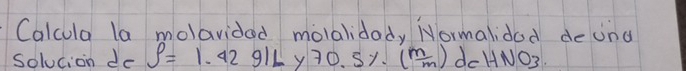 Calcula la molaridad molalidad y Normalidad de una
solucion de ρ= 1.42 g/L y 70.5%. (m/m) de HNO3.